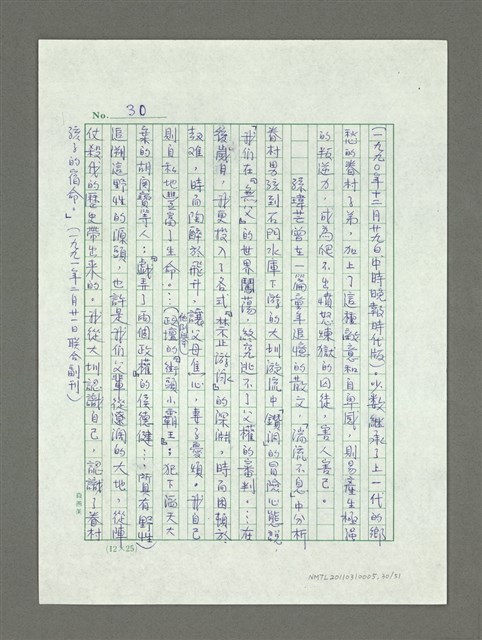 No. 30
(一九九〇年十二月廿九日中時晚報時代版)少數繼承了上一代的鄉
愁的眷村子弟，加上了這種敵意和自卑感，則易產生極強
的叛逆力，成為爬不出憤怒煉獄的囚徒，害人害己。
孫瑋芒曾在一篇童年追憶的散文「湍流不息」中分析
眷村男孩到石門水庫下游的大圳漩流中「鑽洞」的冒險心態說：
「我們在『無父』的世界闖蕩，終究逃不了父權的審判。…在
後歲月，我更投入了各式『禁止游泳』的深淵，時而困頓於
劫難，時而陶醉於飛升，讓父母焦心，妻子憂煩。我自己
則自私地豐富了生命。…(政壇的『街頭小霸王』…犯下滔天大
案的胡關寶等人…『戲弄了兩個政權』的侯德健…，所有野性)
追溯這野性的源頭，也許是我們父輩從遼闊的大地，從陣
仗殺伐的歷史帶出來的。我從大圳認識自己，認識了眷村
孩子的宿命。」(一九九一年三月廿一日聯合副刊)
(12×25)
NMTL20110310005.30/31